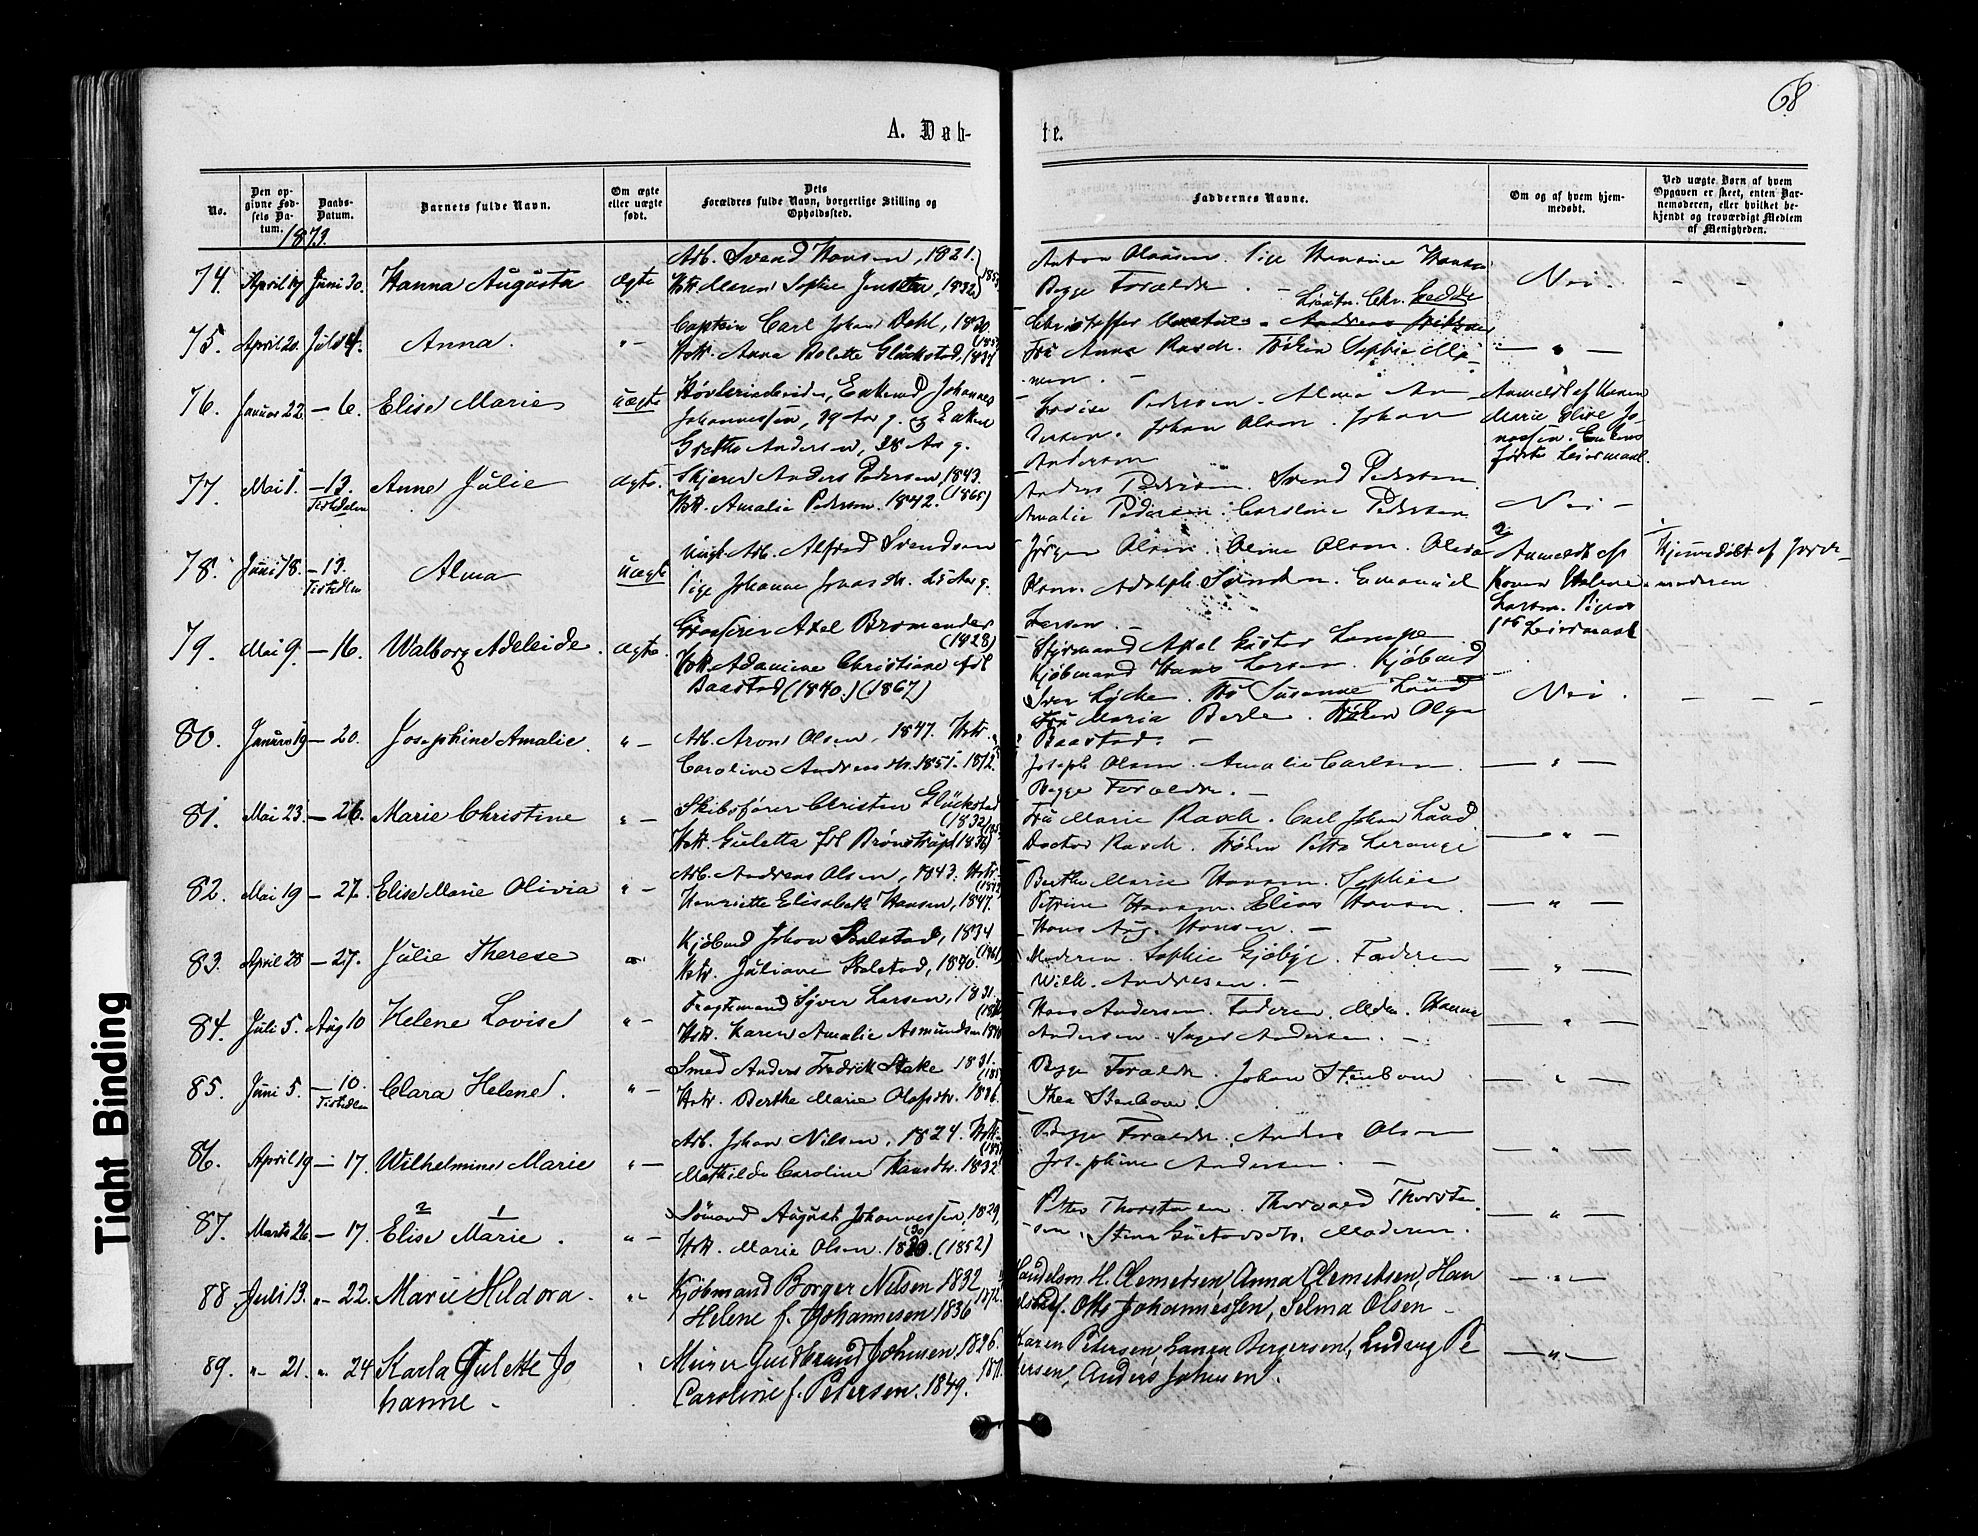 68
A. Døb-
te.
No.
Den op-
givne Fød-
sels Da-
tum.
Daabs-
Datum.
Barnets fulde Navn.
Om ægte
eller uægte
født.
Dets
Forældres fulde Navn, borgerlige Stilling og
Opholdssted.
Faddernes Navne.
Om og af hvem hjem-
medøbt.
Ved uægte Børn af hvem
Opgaven er skeet, enten Bar-
nemoderen, eller hvilket be-
kjendt og troværdigt Medlem
af Menigheden.
1873.
74. April 19 Juni 30. Hanna Augusta Ægte
Arb. Svend Hansen, 1821.
Hstr. Maren Sophie 1832
Anton Olausen. Pige Hansine Hansen
Begge Forældre. —
Nei.
75. April 20. Juli 4. Anna. " —
Captein Carl Johan Dahl, 1830.
Hstr. Anna Bolette Glückstad, 1834
Lieutn. Chr. Gedde
Christopher
Frü Anna Rasch. Frøken Sophie
— " —
76. Januar 22. — 6. Elise Marie Uægte
Høvleriarbeider, Enkemd Johannes
Johannessen, 29 Aar g. og Enken
Grethe Andersen, 28 Aar g.
Lovise Pedersen. Alma An
dersen. Johan Olsen. Johan
Andersen
Anmeldt af Konen
Marie Elise Jo-
nassen. Enkens
første Leiermaal.
77. Mai 1. — 13. Anne Julie Ægte.
Tistedalen
Skjærer Anders Pedersen, 1843.
Hstr. Amalie Pedersen. 1842. (1865)
Anders Pedersen. Svend Pedersen.
Amalie Pedersen. Caroline Pedersen
Nei —
78. Juni 18. — 13. Alma Uægte
Tistedlen
Ungk. Arb. Alfred Svendsen
Pige Johanne 25 Aar g.
Jørgen Olsen. Oline Olsen.
Adolph Svendsen. Emanuel
Larsen. —
Anmeldt af
Konen Helene
Larsen. Pigens
1ste Leiermaal
Hjemmedøbt af Jorde-
moderen
79. Mai 9. — 16. Walborg Adeleide. Ægte.
Grosserer Axel Bromander
(1828)
Hstr. Adamine Christiane fdt
Baastad (1840.) (1867)
Styrmand Axel Gustav
Kjøbmand Hans Larsen. Kjøbmd
Iver Lyche. Frü Susanne Lüüd
Frü Maria Berle. Frøken Olga
Baastad. —
Nei. — — —
80. Januar 19 — 20. Josephine Amalie. " —
Arb. Aron Olsen, 1847. Hstr.
Caroline Andreasdtr. 1851. 1872.
Joseph Olsen. Amalie Carlsen.
Begge Forældre. —
— " —
81. Mai 23. — 26. Marie Christine " —
Skibsfører Christen Glückstad
(1832)
Hstr. Guletta fdt Brønstrüp 1836
Frü Marie Rasch. Carl Johan Lüüd
Doctor Rasch. Frøken Petra
— " —
82. Mai 19 — 27. Elise Marie Olivia " —
Arb. Andreas Olsen, 1843. Hstr.
Henriette Elisabeth Hansen, 1847.
Berthe Marie Hansen. Sophie
Petrine Hansen. Elias Hansen.
Hans Aug. Hansen. —
— " —
83. April 28 — 27. Julie Therese " —
Kjøbmd Johan 1834
Hstr. Juliane 1840.
Moderen. Sophie Gjølbye. Faderen
Wilh. Andresen. —
— " —
84. Juli 5. Aug 10 Helene Lovise " —
Fragtemand Syver Larsen, 1831.
Hstr. Karen Amalie Asmundsen
Hans Andersen. Faderen. Moderen. Hanne
Andersen. Inger Andersen. —
— " —
85. Juni 5. — 10. Clara Helene. " —
Tistedlen
Smed Anders Fredrik Stake 1831.
Hstr. Berthe Marie Olafsdtr. 1836.
Begge Forældre. Johan Stenbom
Thea Stenbom.
— " —
86. April 19 — 17. Wilhelmine Marie " —
Arb. Johan Nilsen, 1824. Hstr.
Mathilde Caroline Hansdtr. 1832
Begge Forældre. Anders Olsen
Josephine Andersen. —
— " —
87. Marts 26. — 17. Elise Marie. " —
2 1
Sømand August Johannessen, 1829,
Hstr. Marie Olsen. 1830. (1852)
Petter Thorstensen. Thorvald Thorsten
sen. Stina Güstavsdtr. Moderen.
— " —
88. Juli 13. " — 22. Marie Hildora. " —
Kjøbmand Borger Nilsen 1832
Helene f. Johannesen 1836 1872.
Handelsm H. Clemetsen, Anna Clemetsen, Han
delsbetj. Otto Johannessen, Selma Olsen —
— " —
89. " — 21. " 24 Karla Gulette Jo
hanne —
Murer Gudbrand Johnsen, 1826.
Caroline f. Petersen. 1849.
Karen Petersen, Laura Bergersen, Ludvig Pe
tersen, Anders Johnsen.
— " —
Tight Binding